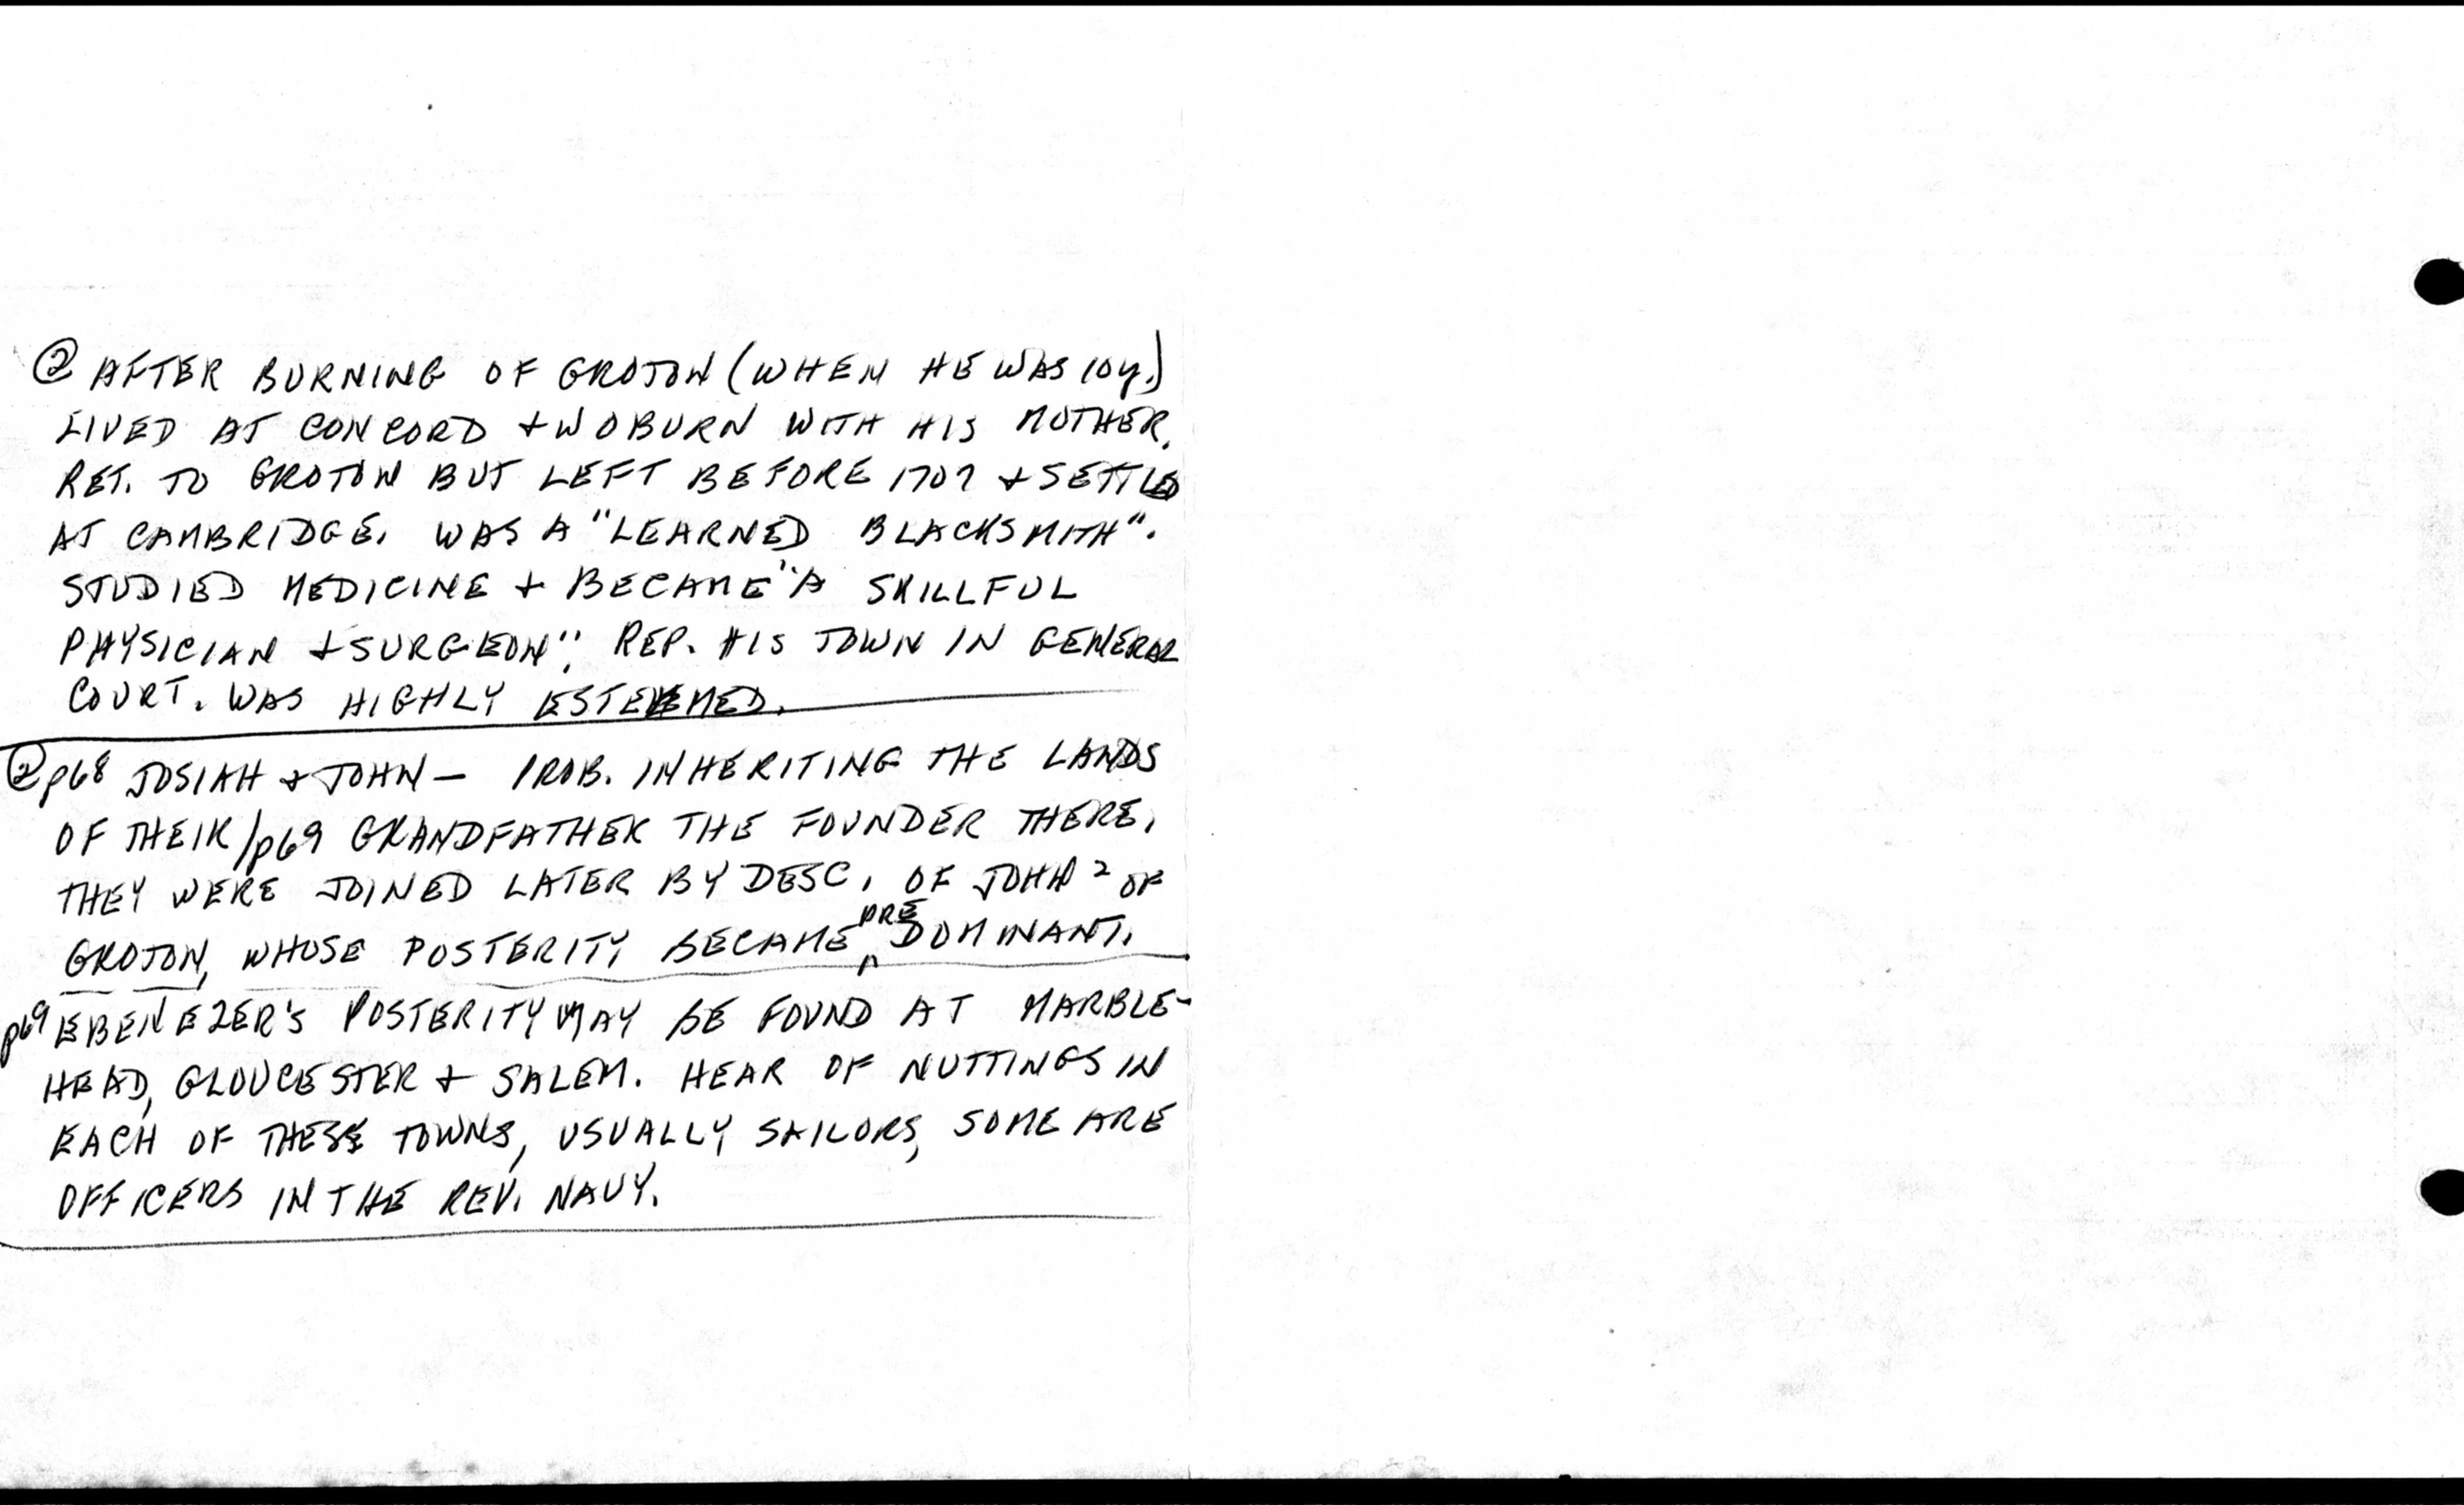 ② AFTER BURNING OF GROTON (WHEN HE WAS 10y.)
LIVED AT CONCORD + WOBURN WITH HIS MOTHER.
RET. TO GROTON BUT LEFT BEFORE 1707 + SETTLED
AT CAMBRIDGE. WAS A "LEARNED BLACKSMITH".
STUDIED MEDICINE + BECAME "A SKILLFUL
PHYSICIAN + SURGEON". REP. HIS TOWN IN GENERAL
COURT. WAS HIGHLY ESTEEMED.
② p68 JOSIAH + JOHN — PROB. INHERITING THE LANDS
OF THEIR /p69 GRANDFATHER THE FOUNDER THERE.
THEY WERE JOINED LATER BY DESC. OF JOHN² OF
GROTON, WHOSE POSTERITY BECAME PREDOMINANT.
p69 EBENEZER'S POSTERITY MAY BE FOUND AT MARBLE-
HEAD, GLOUCESTER + SALEM. HEAR OF NUTTINGS IN
EACH OF THESE TOWNS, USUALLY SAILORS, SOME ARE
OFFICERS IN THE REV. NAVY.